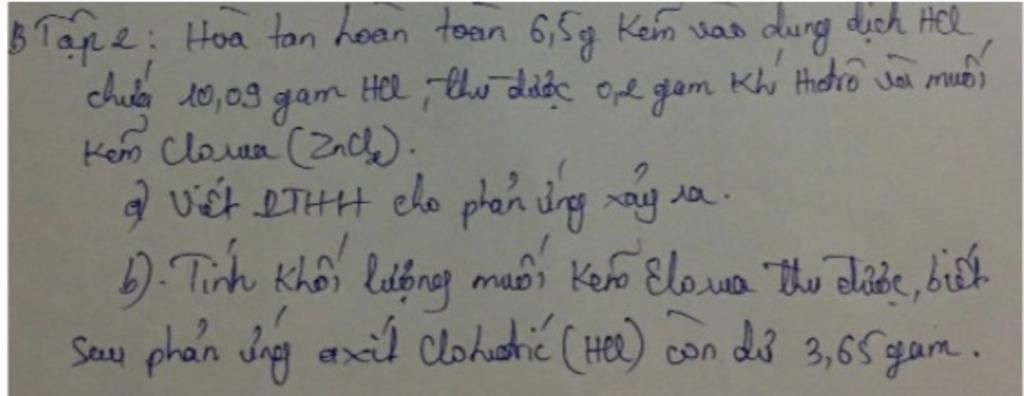 BTập 2: Hoà tan hoàn toàn 6,5g Kẽm vào dung dịch HCl
chứa 10,09 gam HCl, thu được 0,2 gam Khí Hiđrô và muối
Kẽm Clorua (ZnCl2).
a) Viết PTHH cho phản ứng xảy ra.
b). Tính Khối lượng muối Kẽm Clorua thu được, biết
sau phản ứng axit Clohiđric (HCl) còn dư 3,65 gam.